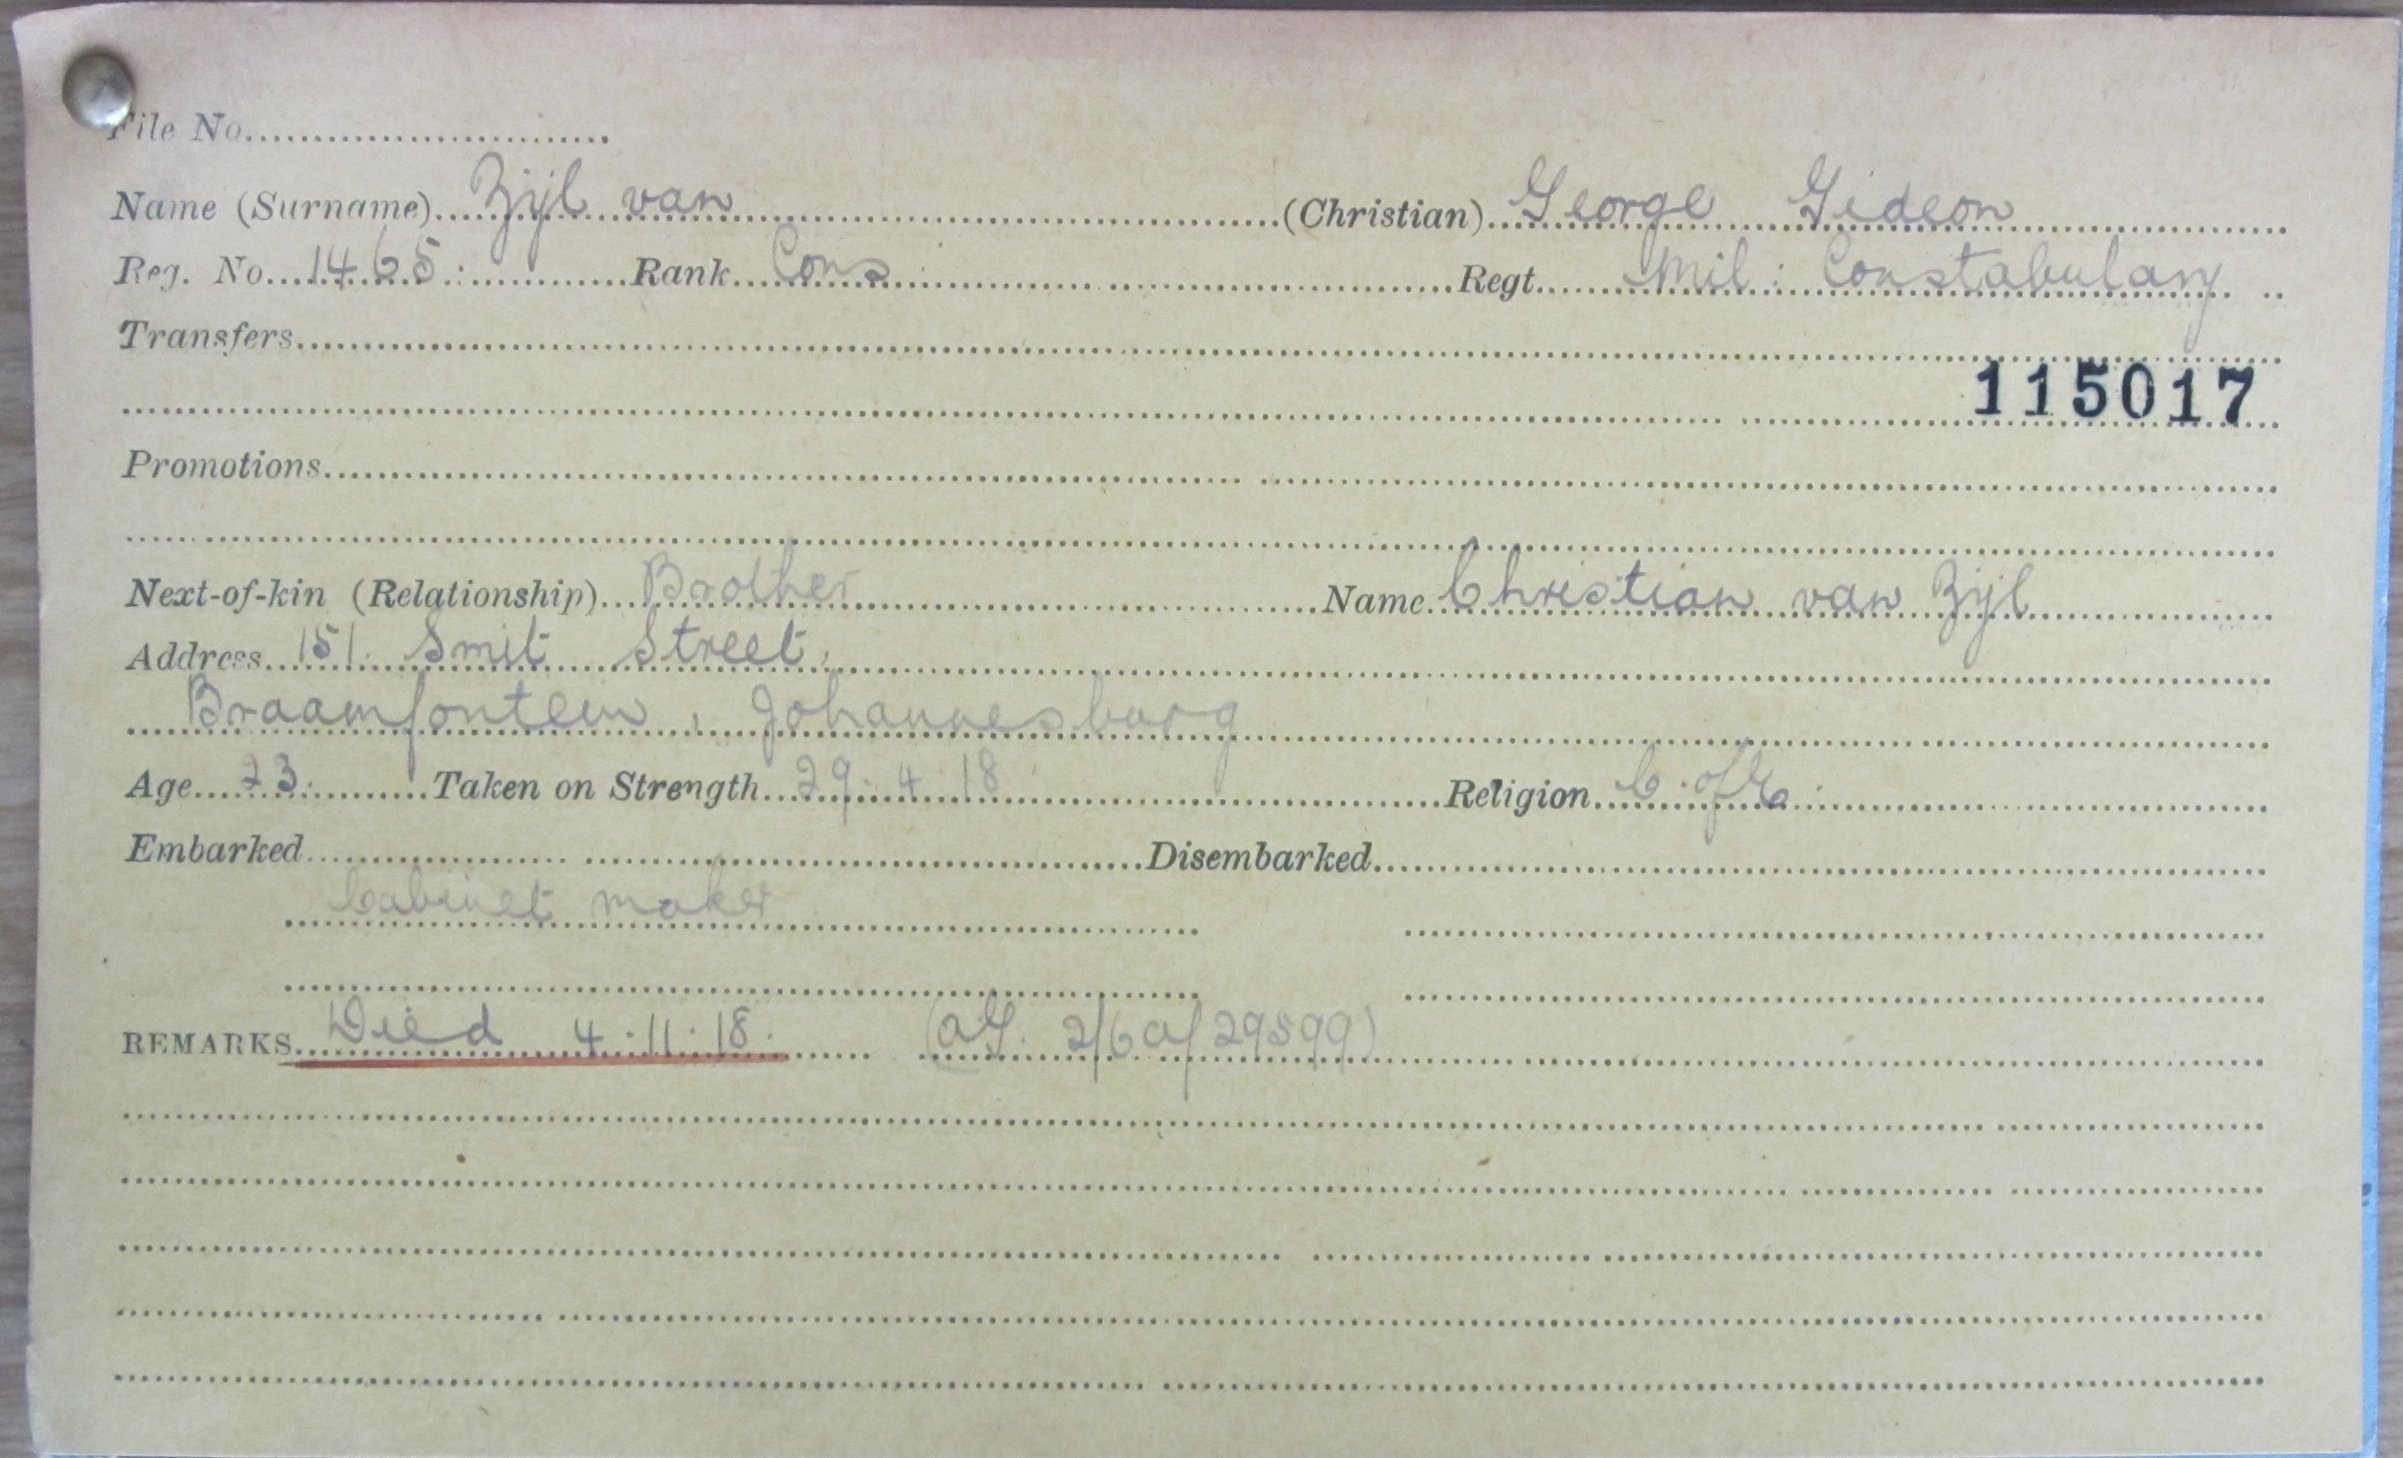 File No.
Name (Surname) Zijl van (Christian) George Gideon
Reg. No. 1465. Rank Cons Regt. Mil: Constabulary
Transfers
115017
Promotions
Next-of-kin (Relationship) Brother Name Christian van Zijl
Address 151. Smit Street,
Braamfontein, Johannesburg
Age 23. Taken on Strength 29.4.18 Religion C. of E.
Embarked Disembarked
Cabinet maker
REMARKS Died 4.11.18. (AG. 2/6a/29599)